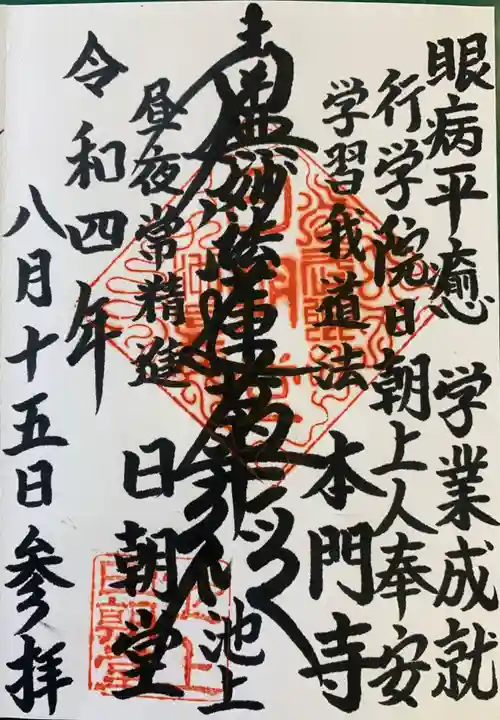 眼病平癒 学業成就
行学院日朝上人奉安
学習我道法 本門寺
南無妙法蓮華経
池上
昼夜常精進 日朝堂
令和四年
八月十五日参拝
池上
日朝堂